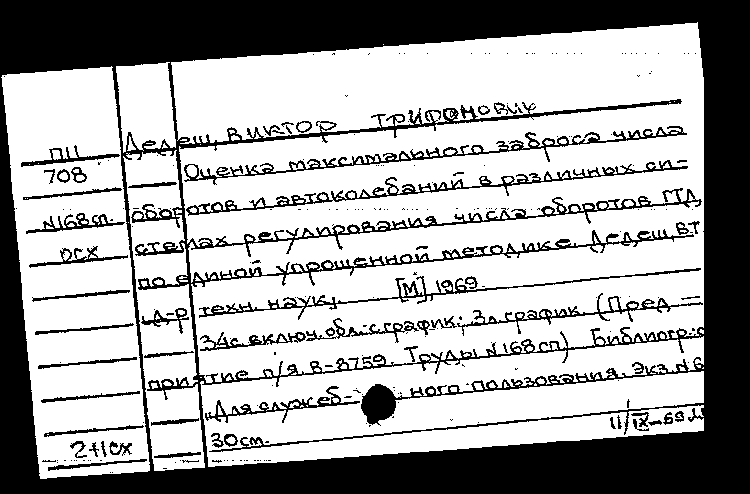 Дедеш, Виктор Трифонович
ПП
708
Оценка максимального заброса числа
N168сп. оборотов и автоколебаний в различных си-
осх стемах регулирования числа оборотов ГТД
по единой упрощенной методике. Дедеш, ВТ
д-р техн. наук,. [М], 1969.
34с. включ. обл.: с график.; 3л. график. (Пред —
приятие п/я. В-8759. Труды N168сп) Библиогр.: с
„Для служеб- ного пользования. Экз. N6
2+1сх 30см.
11/IX-69